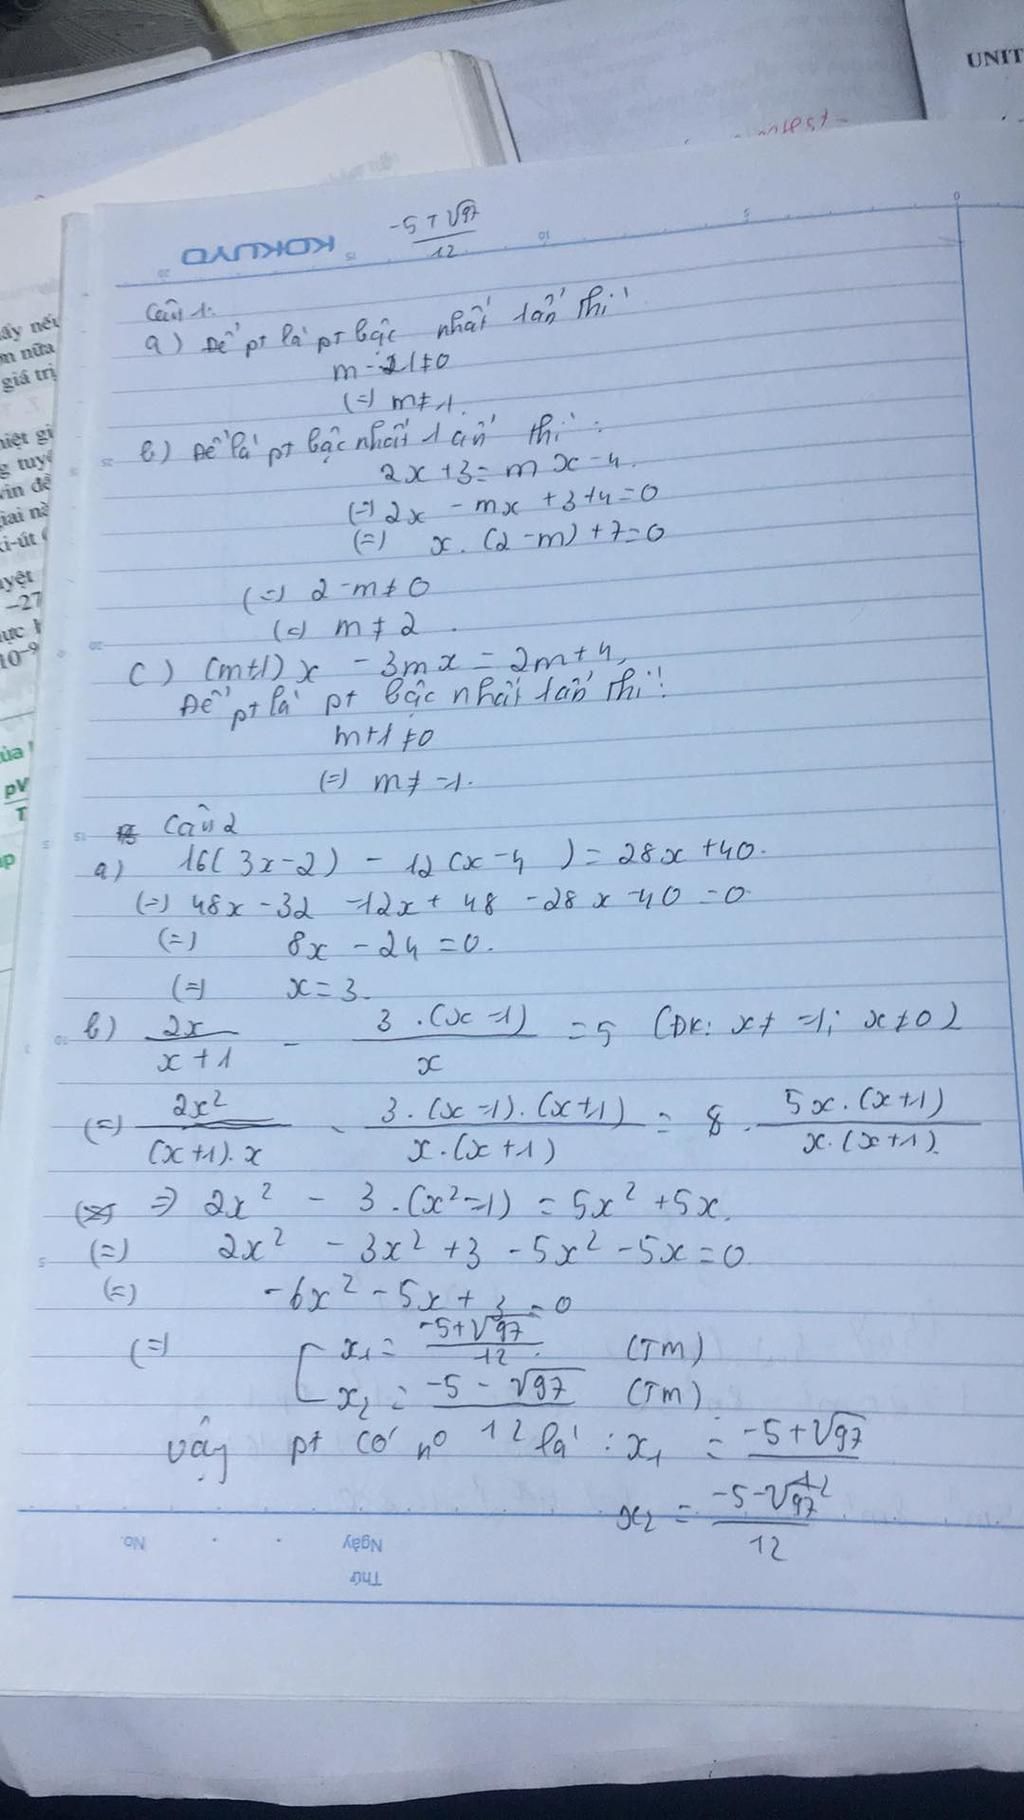 UNIT
ấy nếu
ơn nữa
giá trị
-27
10⁻⁹
pV
T
KOKUYO
-5+√97
12
Câu 1:
a) Để pt là pt bậc nhất 1 ẩn thì
m - 1 ≠ 0
(=) m ≠ 1.
b) Để là pt bậc nhất 1 ẩn thì :
2x + 3 = mx - 4.
(=) 2x - mx + 3 + 4 = 0
(=) x . (2 - m) + 7 = 0
(=) 2 - m ≠ 0
(=) m ≠ 2.
c) (m+1)x - 3mx = 2m + 4,
Để pt là pt bậc nhất 1 ẩn thì:
m + 1 ≠ 0
(=) m ≠ -1.
Câu 2
a) 16(3x - 2) - 12(x - 4) = 28x + 40.
(=) 48x - 32 - 12x + 48 - 28x - 40 = 0
(=) 8x - 24 = 0.
(=) x = 3.
b) 2x/(x + 1) - 3.(x - 1)/x = 5 (ĐK: x ≠ -1; x ≠ 0)
(=) 2x²/((x+1).x) - 3.(x-1).(x+1)/(x.(x+1)) = 5x.(x+1)/(x.(x+1))
=> 2x² - 3.(x² - 1) = 5x² + 5x.
(=) 2x² - 3x² + 3 - 5x² - 5x = 0
(=) -6x² - 5x + 3 = 0
(=) [ x₁ = (-5+√97)/12 (TM)
x₂ = (-5-√97)/12 (TM)
Vậy pt có nº là : x₁ = (-5+√97)/12
x₂ = (-5-√97)/12
No.
Ngày
Thứ